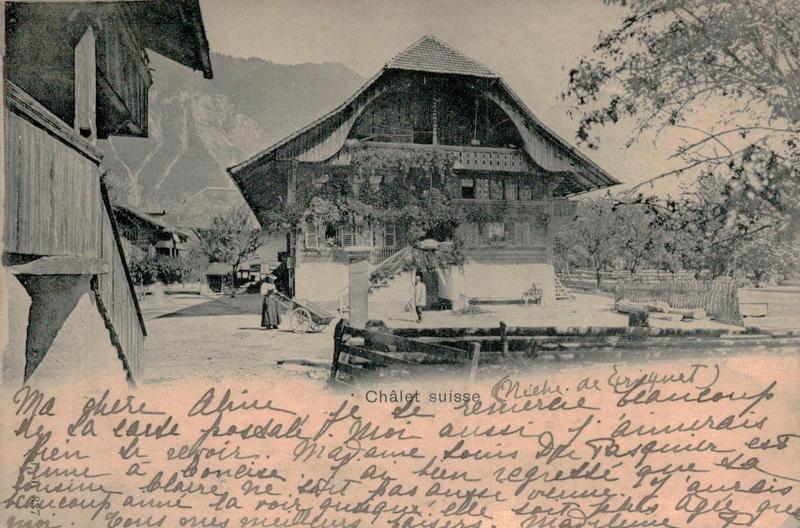 Châlet suisse (Niche de Friquet)
Ma chère Aline je te remercie beaucoup
de ta carte postale. Moi aussi j'aimerais
bien te revoir. Madame Louis Du Pasquier est
venue à Concise. J'ai bien regretté que ta
cousine Claire ne soit pas aussi venue. J'aurais
beaucoup aimé la voir quoiqu'elle soit plus âgée que
moi. Tous mes meilleurs baisers. Madeleine